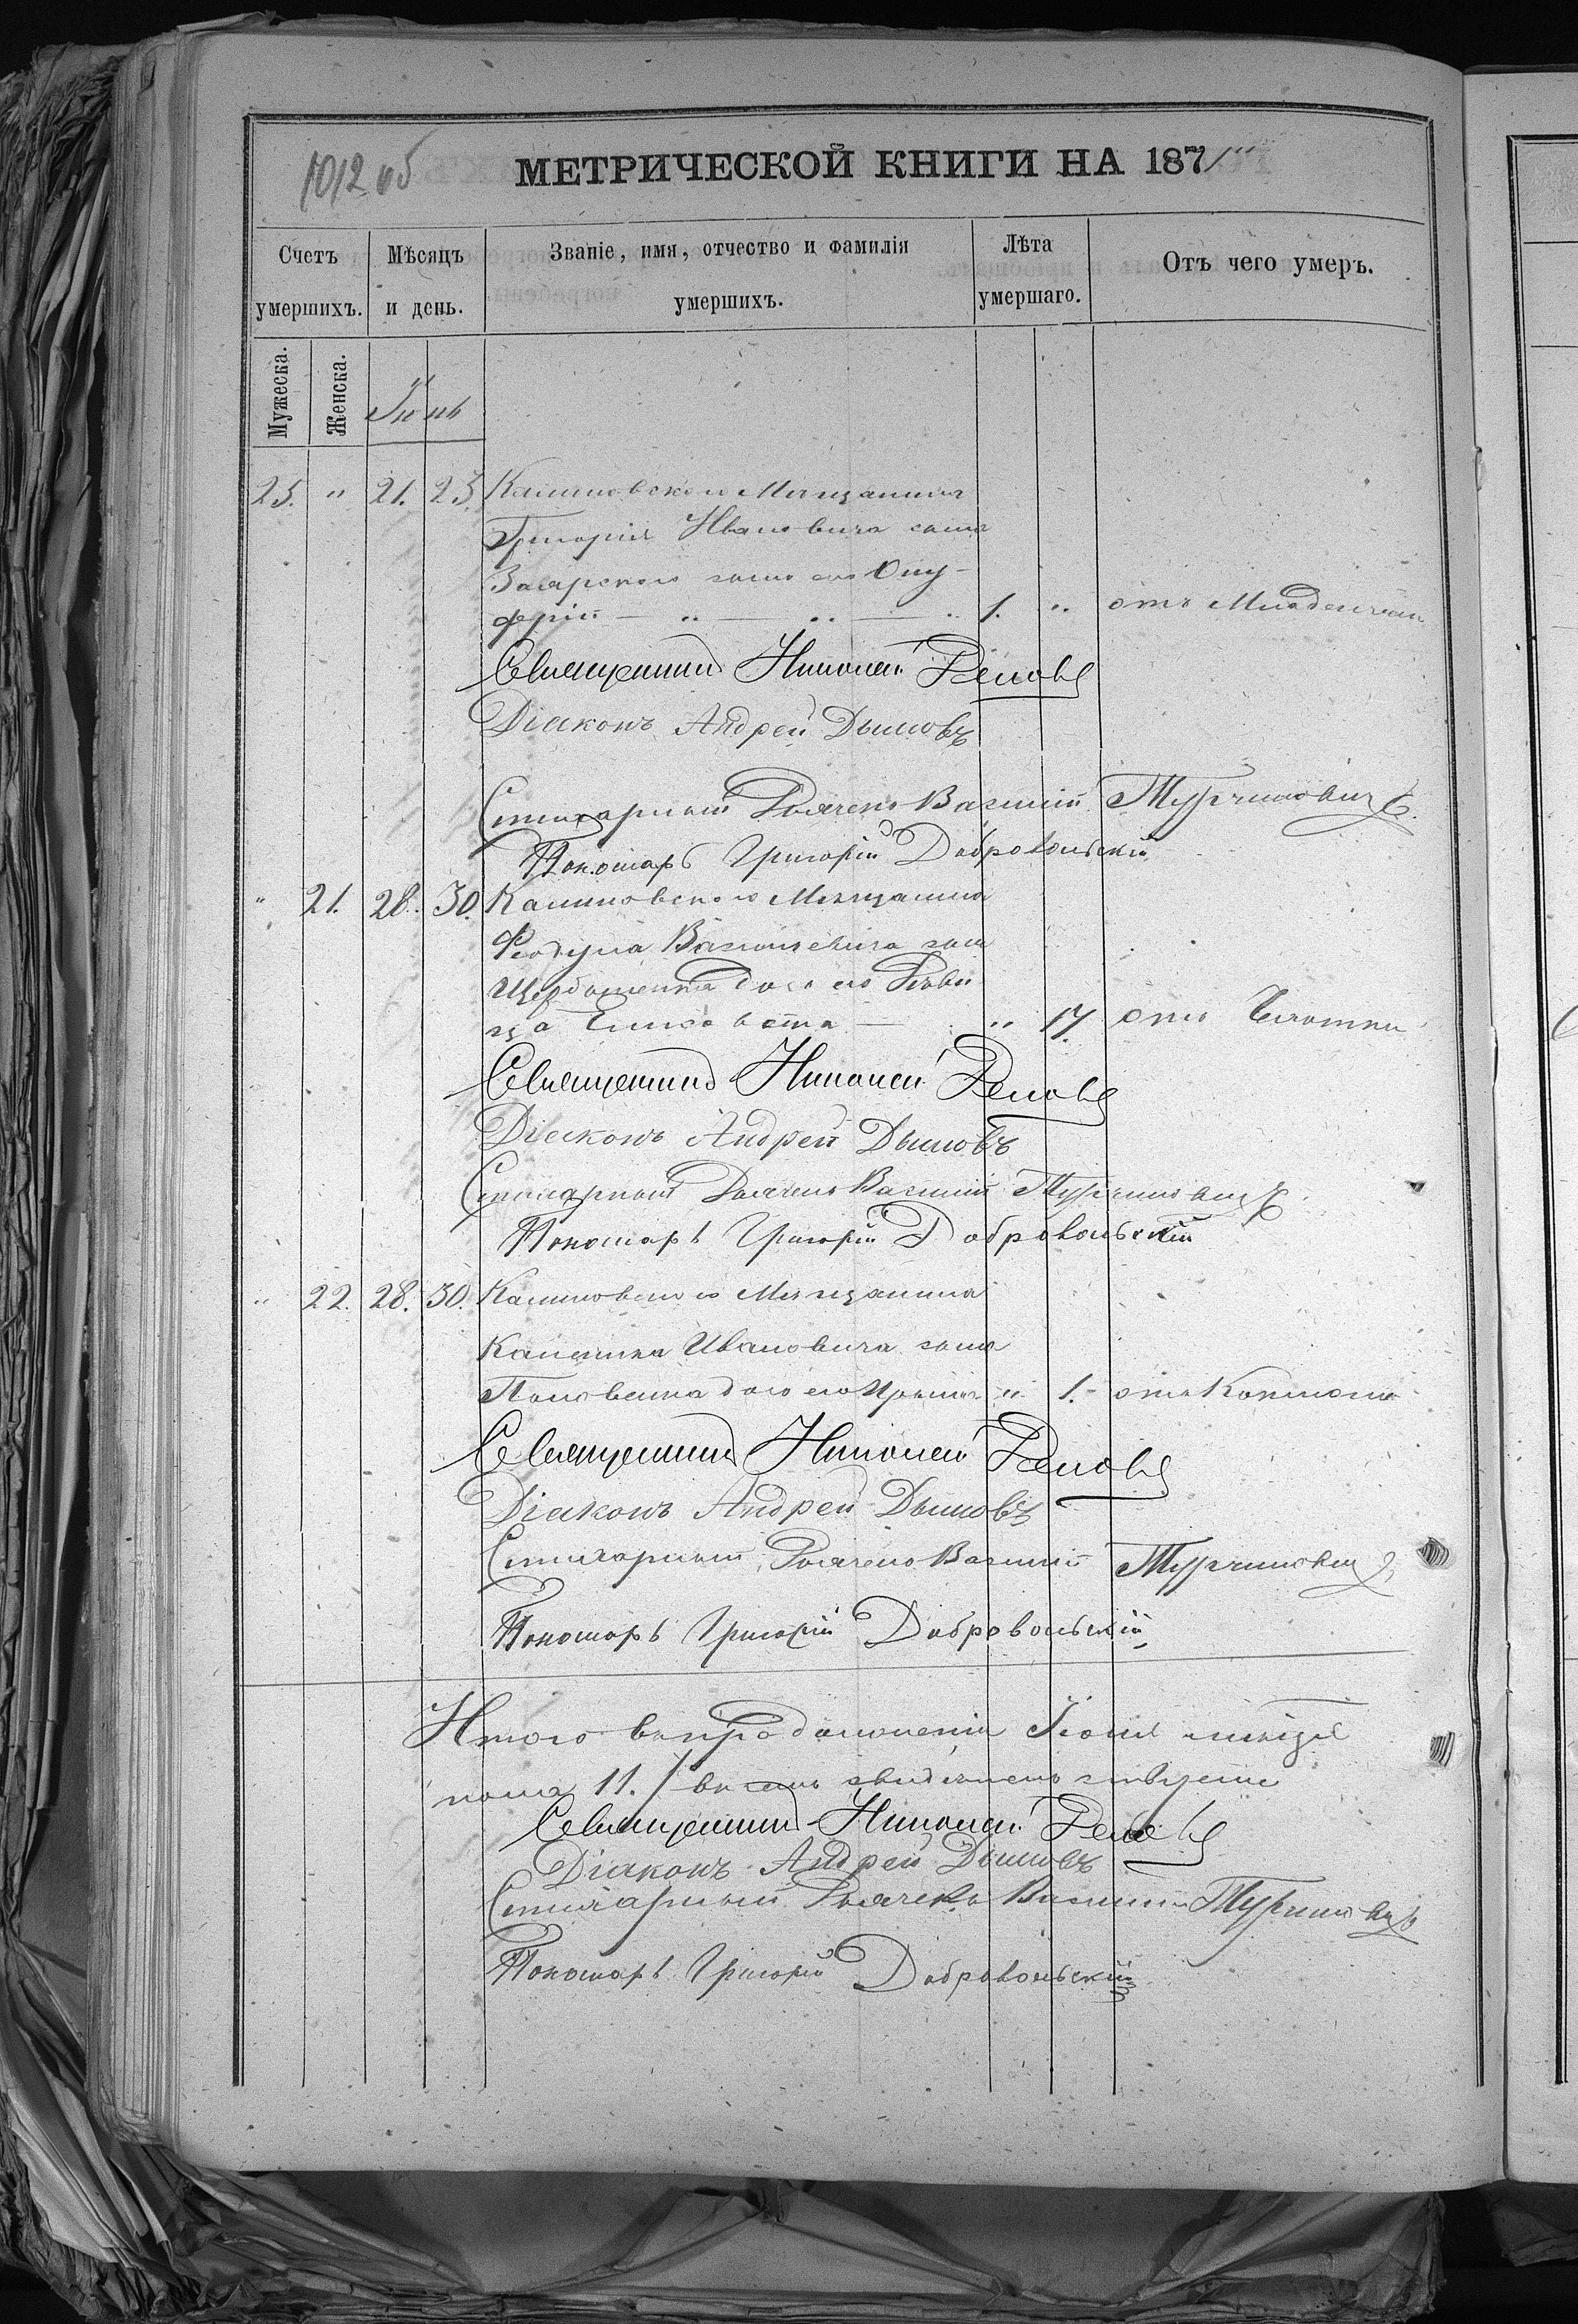 1012 об
МЕТРИЧЕСКОЙ КНИГИ НА 187
Счетъ умершихъ.
Мѣсяцъ и день.
Званіе, имя, отчество и фамилія умершихъ.
Лѣта умершаго.
Отъ чего умеръ.
Мужеска.
Женска.
Іюнь
25. " 21. 23. Калиновского Мѣщанина
Григорія Ивановича сына
сына его Ону-
фрій 1. " отъ
Священникъ Николай
Діаконъ Андрей Дымовъ
Стихарный Дьячекъ Василій Турчиновичъ
Пономарь Григорій Добровольскій
" 21. 28. 30. Калиновского Мѣщанина
Феодула Васильевича сына
Щербатенка дочь его Дѣви
ца Елисавета " 17. отъ Чахотки
Священникъ Николай
Діаконъ Андрей Дымовъ
Стихарный Дьячекъ Василій Турчиновичъ
Пономарь Григорій Добровольскій
" 22. 28. 30. Калиновского Мѣщанина
Каленика Ивановича сына
дочь его Ирина " 1. отъ
Священникъ Николай
Діаконъ Андрей Дымовъ
Стихарный Дьячекъ Василій Турчиновичъ
Пономарь Григорій Добровольскій
Итого въ продолженіи Іюня мѣсяца
пола 11. въ чемъ
Священникъ Николай
Діаконъ Андрей Дымовъ
Стихарный Дьячекъ Василій Турчиновичъ
Пономарь Григорій Добровольскій